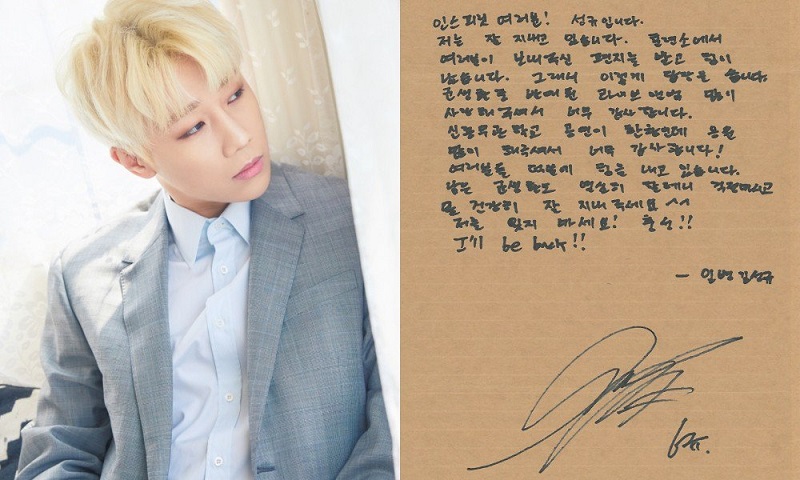 인스피릿 여러분! 성규입니다.
저는 잘 지내고 있습니다. 훈련소에서
여러분이 보내주신 편지를 받고 힘이
났습니다. 그래서 이렇게 답장을 씁니다.
군생활 중 발매된 라이브 앨범 많이
사랑해주셔서 너무 감사합니다.
신흥무관학교 공연이 한창인데 응원
많이 해주셔서 너무 감사합니다!
여러분들 덕분에 힘을 내고 있습니다.
남은 군생활도 열심히 할테니 걱정마시고
몸 건강히 잘 지내주세요 ^^
저를 잊지 마세요! 충성!!
I'll be back!!
- 일병 김성규